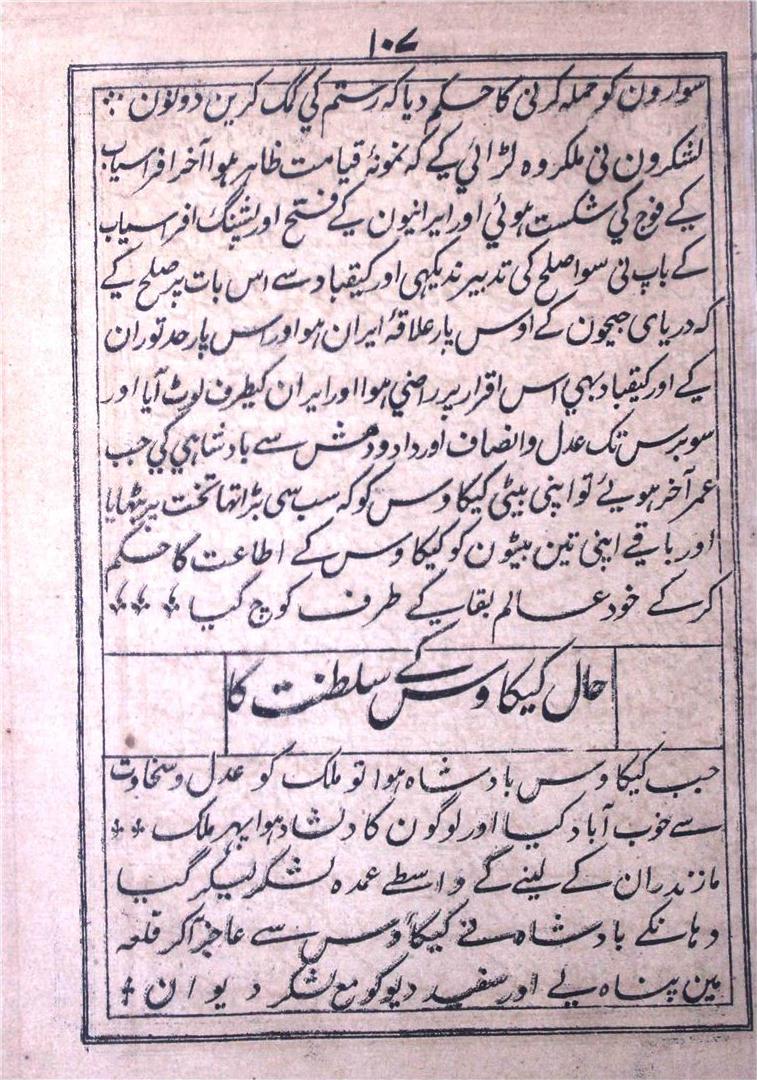 ۱۰۷
سوارون کو حملہ کرنی کا حکم دیا کہ رستم کي کمک کرین دونون
لشکرون نی ملکر وہ لڑائي کے کہ نمونۂ قیامت ظاہر ہوا آخر افراسیاب
کے فوج کي شکست ہوئي اور ایرانیون کے فتح اور پشنگ افراسیاب
کے باپ نی سوا صلح کی تدبیر ندیکہی اور کیقباد سے اس بات پر صلح کے
کہ دریای جیحون کے اوس پار علاقۂ ایران ہو اور اس پار حد توران
کے اور کیقباد بہي اس اقرار پر راضي ہوا اور ایران کیطرف لوٹ آیا اور
سو برس تک عدل و انصاف اور داد و دہش سے بادشاہي کي جب
عمر آخر ہوئے تو اپنی بیٹی کیکاوس کو کہ سب سی بڑا تہا تخت پر بیٹھایا
اور باقے اپنی تین بیٹون کو کیکاوس کے اطاعت کا حکم
کر کے خود عالم بقا کے طرف کوچ کیا
حال کیکاوس کے سلطنت کا
جب کیکاوس بادشاہ ہوا تو ملک کو عدل و سخاوت
سے خوب آباد کیا اور لوگون کا دلشاد ہوا پہر ملک
مازندران کے لینے کے واسطے عمدہ لشکر لیکر گیا
وہانکے بادشاہ نے کیکاؤس سے عاجز آکر قلعہ
مین پناہ لے اور سفید دیو کو مع لشکر دیوان